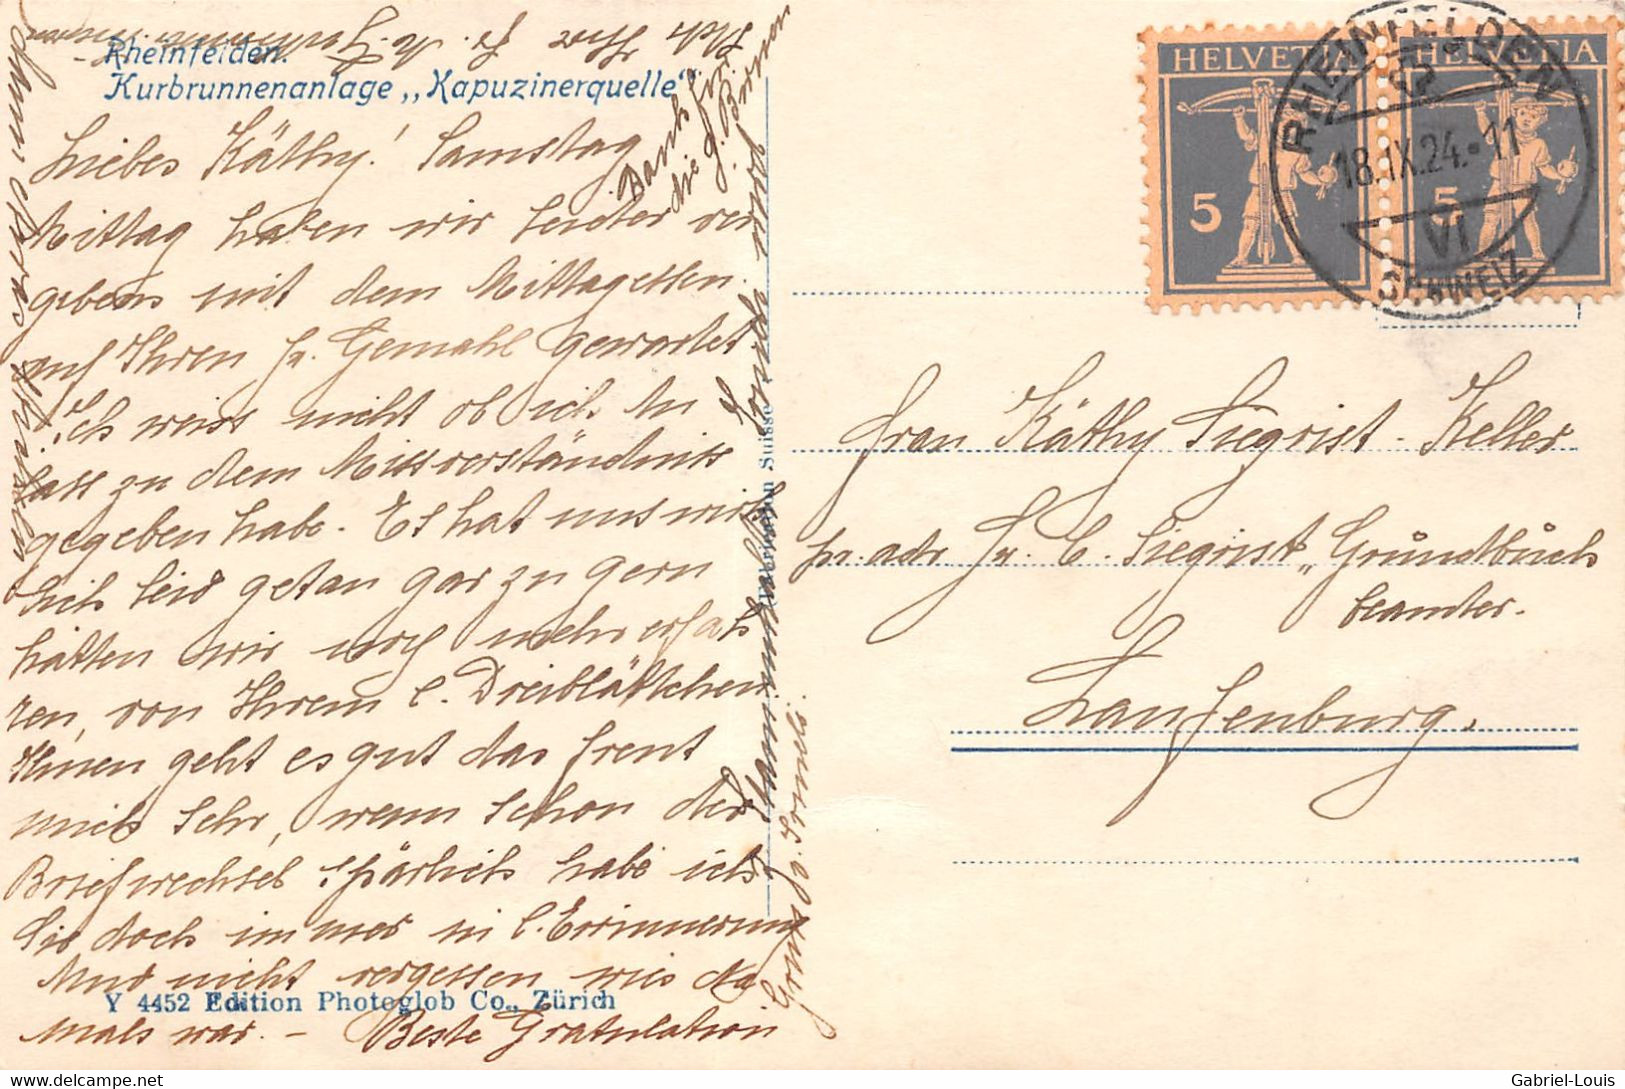 Rheinfelden.
Kurbrunnenanlage „Kapuzinerquelle“.
Liebes Käthy! Samstag
Mittag haben wir leider ver
gebens mit dem Mittagessen
auf Ihren Hr. Gemahl gewartet
Ich weiss nicht ob ich An
lass zu dem Missverständnis
gegeben habe. Es hat uns wirk
lich leid getan gar zu gern
hätten wir noch mehr erfah
ren, von Ihrem l. Dreiblättchen
Ihnen geht es gut das freut
mich sehr, wenn schon der
Briefwechsel spärlich habe ich
Sie doch immer in l. Erinnerung
und nicht vergessen wie da
mals war. - Beste Gratulation
Dank für
die g. Birnen
HELVETIA
5
HELVETIA
5
RHEINFELDEN
18.IX.24.-11
VI
SCHWEIZ
Frau Käthy Siegrist-Keller
pr. adr. Hr. C. Siegrist „Grundbuch
beamter.
Laufenburg.
Suisse
Y 4452 Edition Photoglob Co., Zürich
delcampe.net
Gabriel-Louis